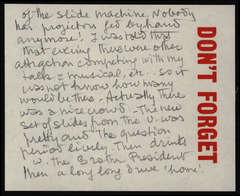 of the slide machine. Nobody
has projectors fed by hand
anymore! I was told that
that evening there were other
attraction competing with my
talk = musical, etc... so it
was not know how many
would be there. Actually there
was a nice crowd - The new
set of slides from the U. was
pretty and the question
period lively. Then drinks
w. the Erotm President
then a long long drive 'home'
DON'T FORGET